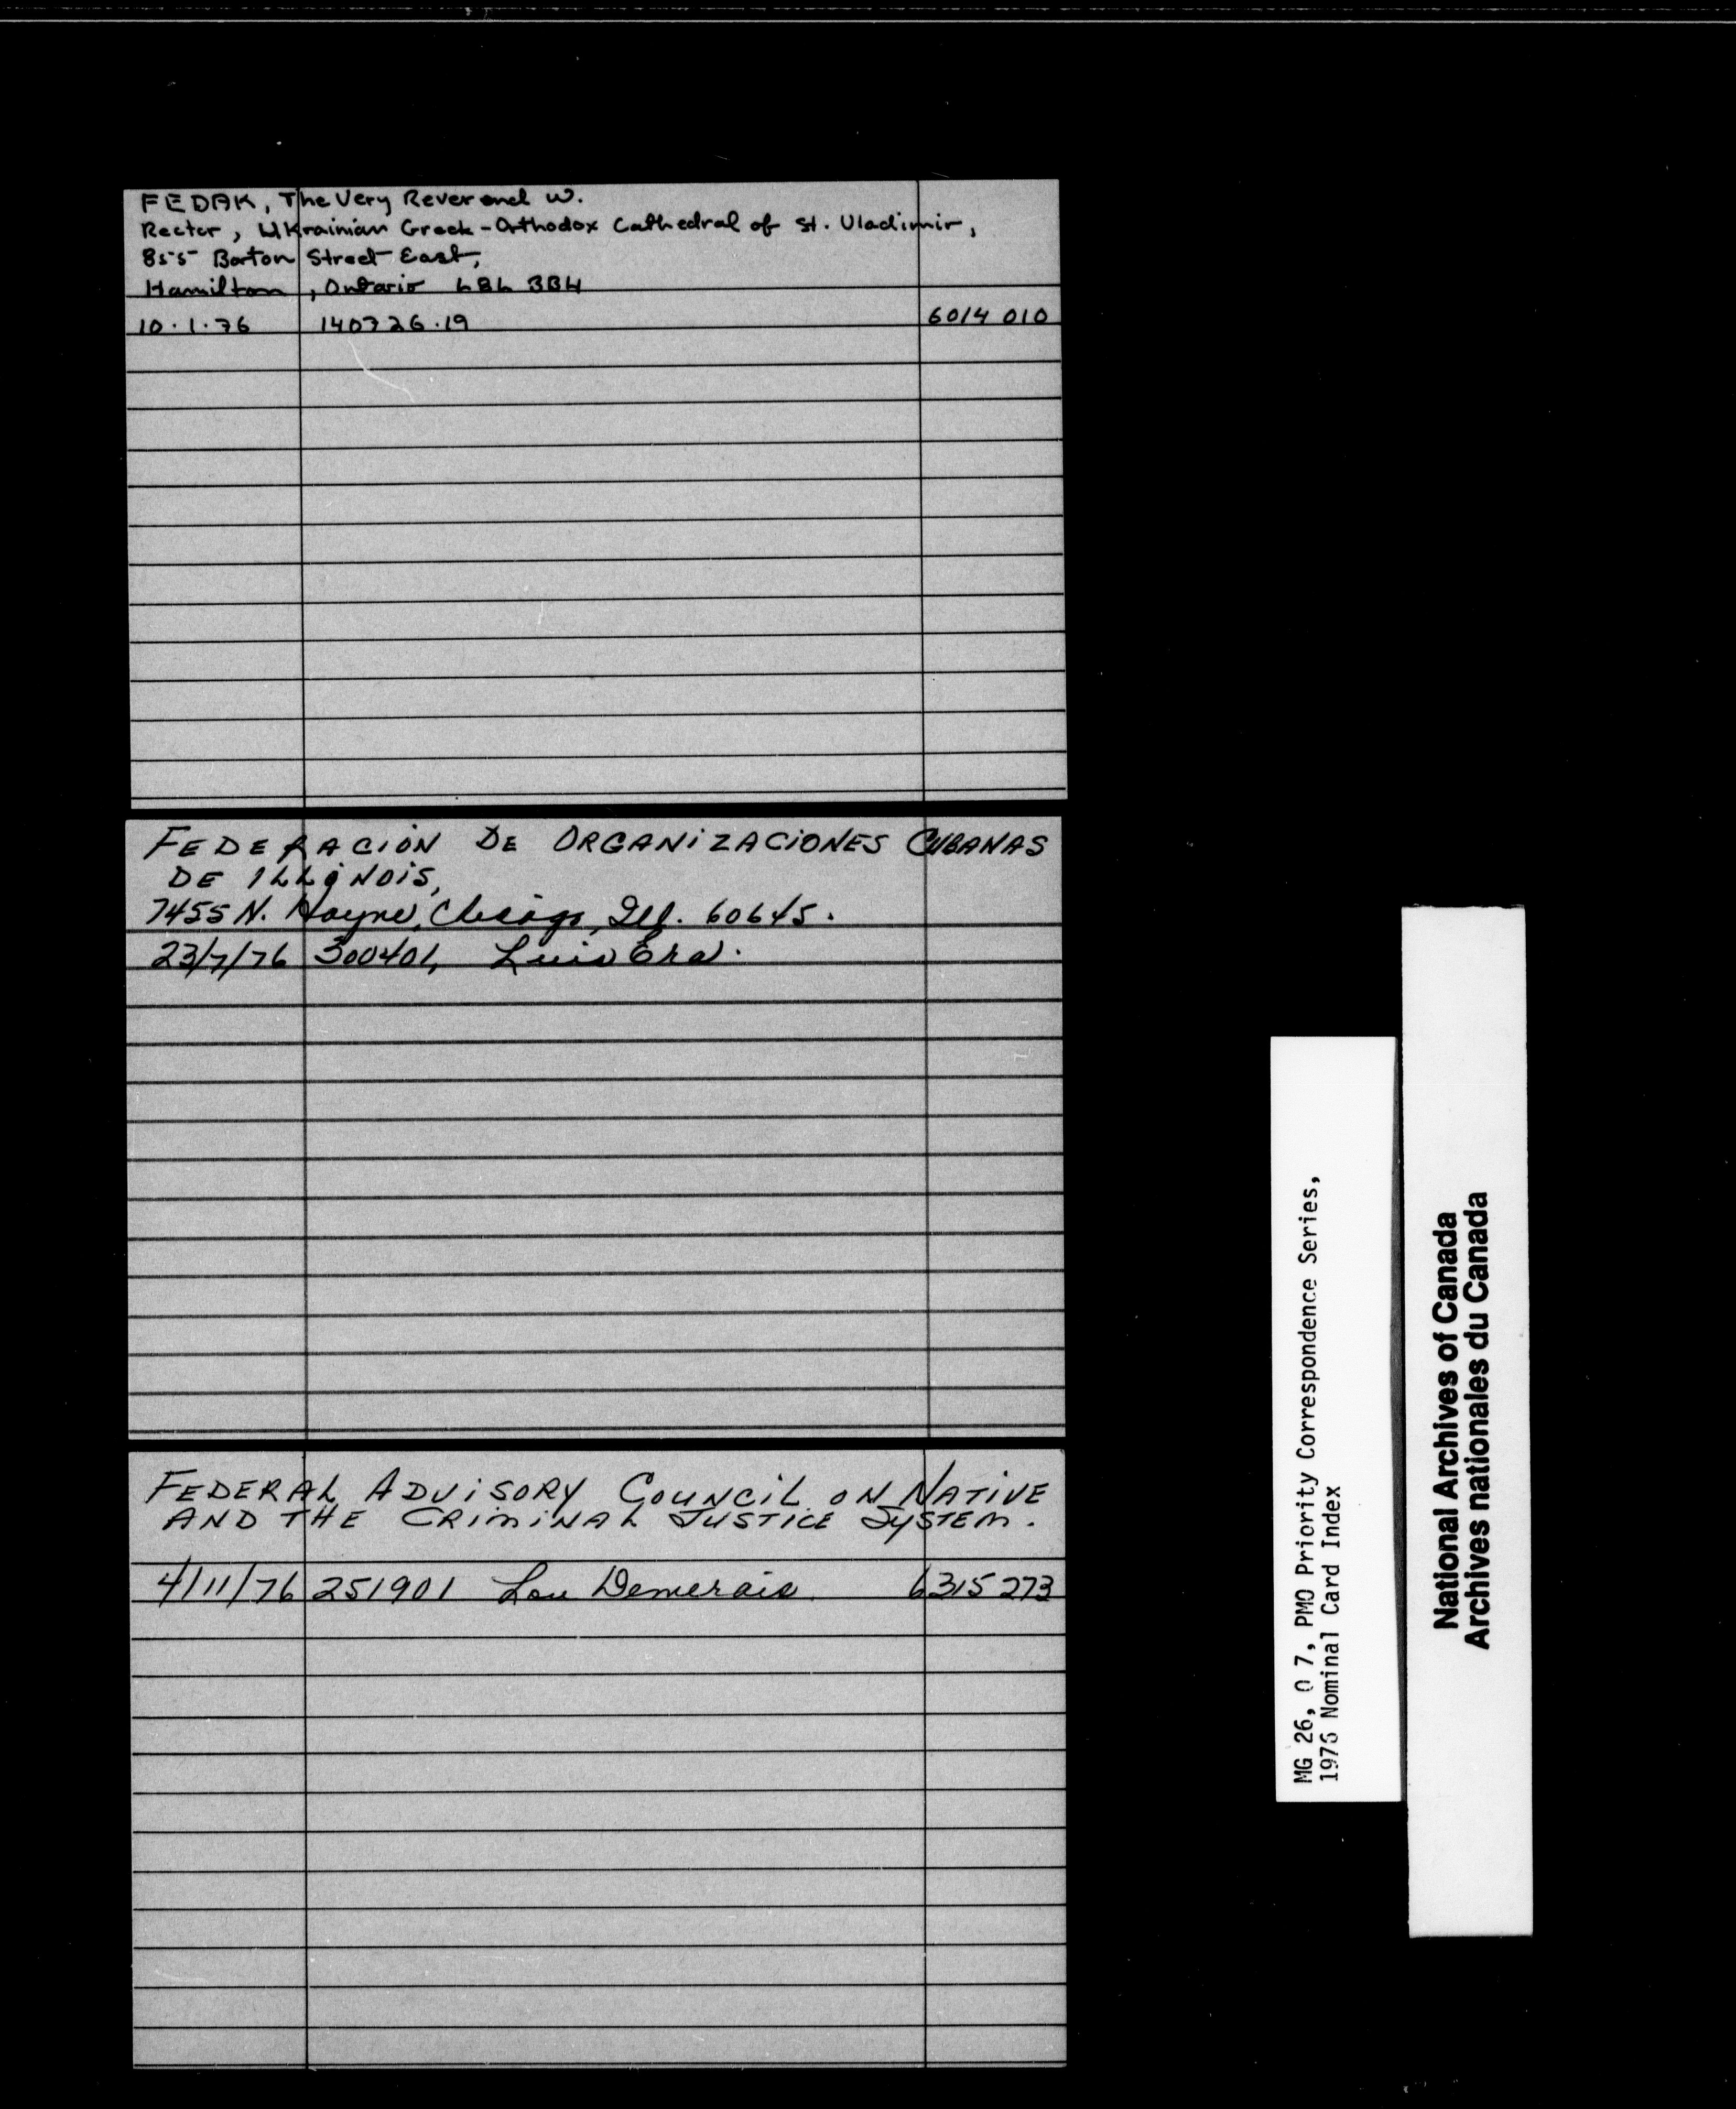 FEDAK, The Very Reverend W.
Rector, Ukrainian Greek-Orthodox Cathedral of St. Vladimir,
855 Barton Street East,
Hamilton, Ontario L8L 3B4
10.1.76 140726.19 6014 010
FEDERACIÓN DE ORGANIZACIONES CUBANAS
DE ILLINOIS,
7455 N. Hayne, Chicago, Ill. 60645.
23/7/76 300401, Luis
FEDERAL ADVISORY COUNCIL ON NATIVE
AND THE CRIMINAL JUSTICE SYSTEM.
4/11/76 251901 Lou Demerais 6315 273
MG 26, O 7, PMO Priority Correspondence Series,
1976 Nominal Card Index
National Archives of Canada
Archives nationales du Canada